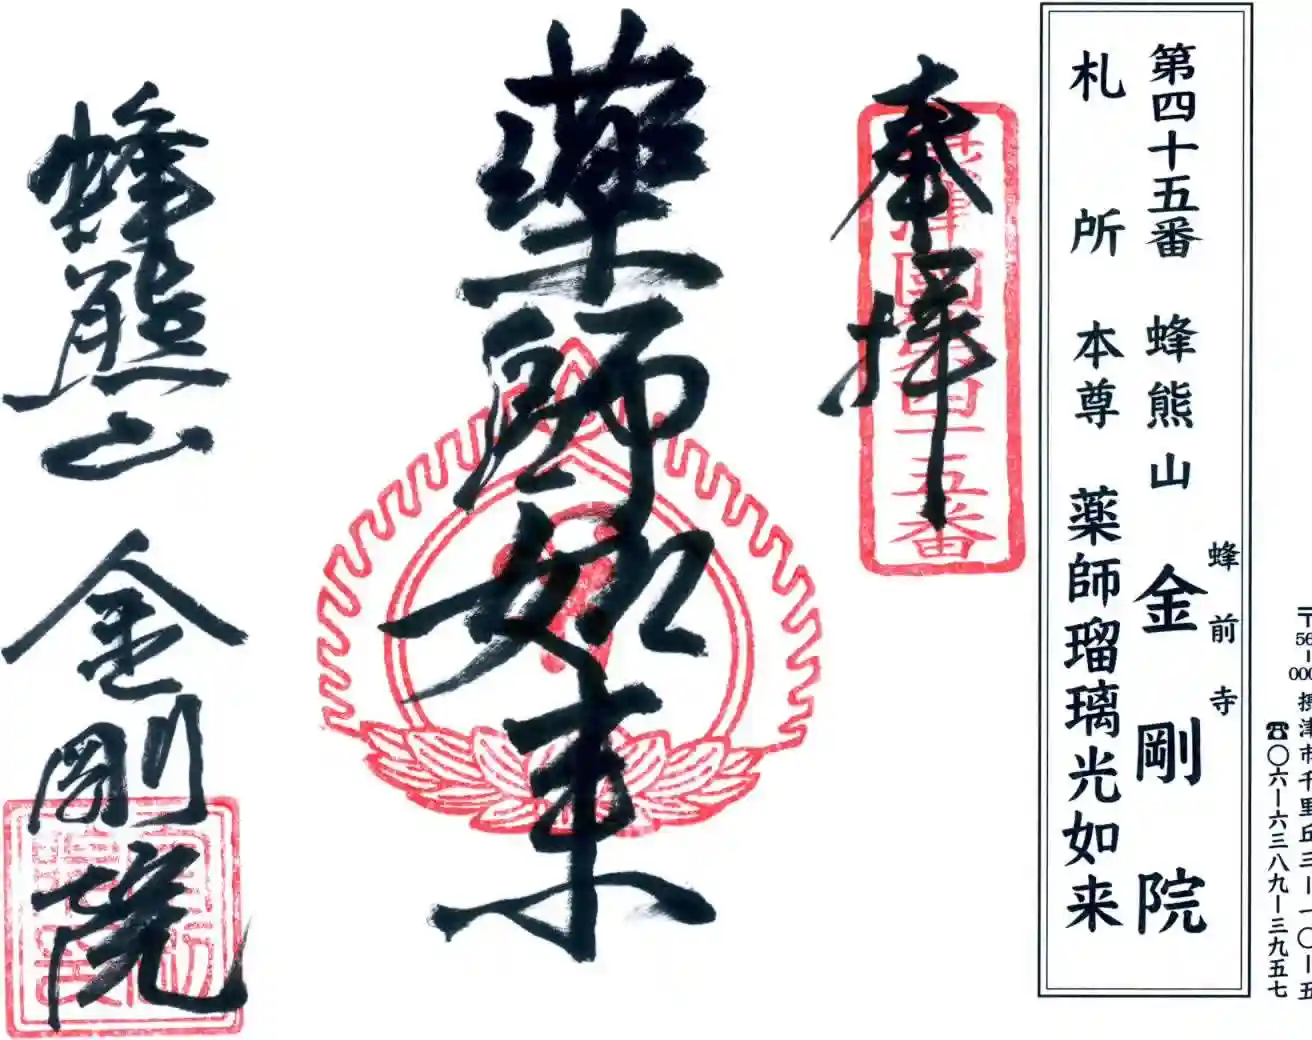 〒56-000 摂津市千里丘三-一〇-五
☎〇六-六三八九-三九五七
第四十五番 蜂熊山 蜂前寺 金剛院
札所 本尊 薬師瑠璃光如来
奉拝
摂津國第四十五番
薬師如来
蜂熊山 金剛院